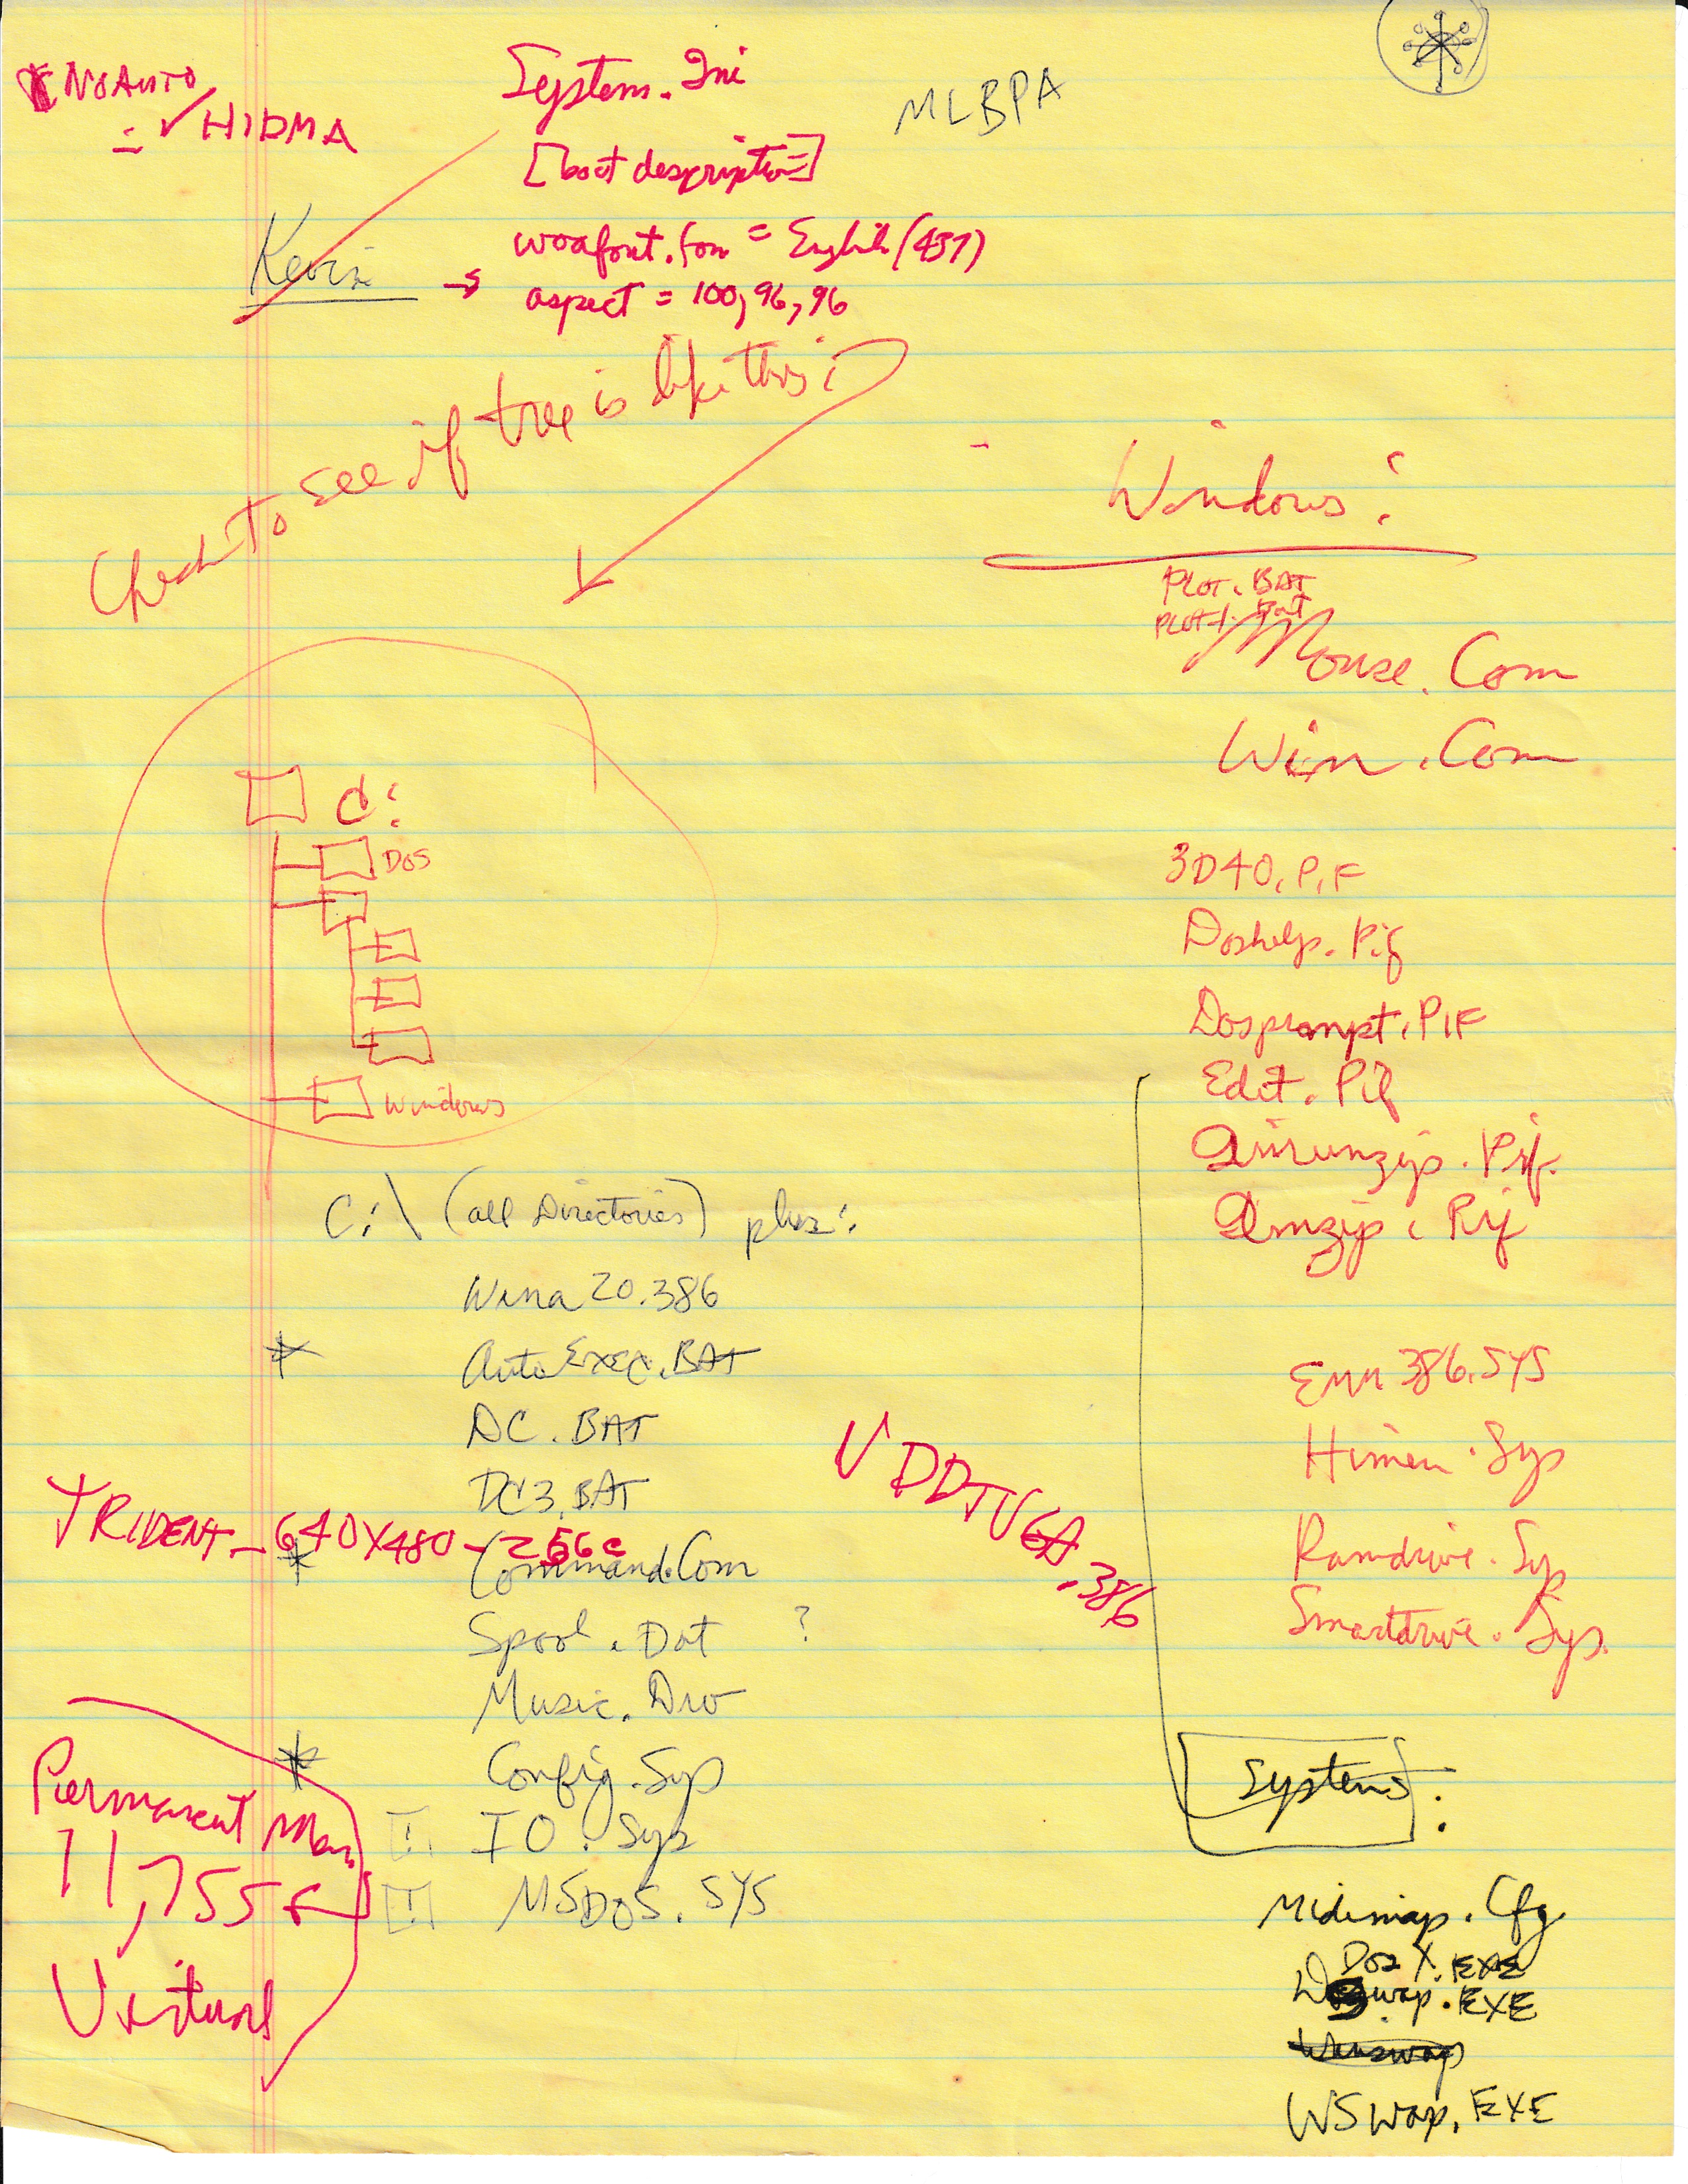 NOAUTO
= ✓ HIDMA
System.Ini
[boot description]
woafont.fon = English (437)
→ aspect = 100,96,96
MLBPA
Kevin
Check to see if tree is like this:
C:
DOS
Windows
C:\ (all Directories) plus:
Wina20.386
* AutoExec.BAT
DC.BAT
DC3.BAT
* Command.Com
Spool.Dat ?
Music.Drv
* Config.Sys
! IO.Sys
! MSDOS.SYS
TRIDENT - 640X480 - 256c
VDDTVGA.386
Permanent Mem.
11,755
Virtual
Windows:
PLOT.BAT
PLOT1.Bat
Mouse.Com
Win.Com
3D40.PIF
Doshelp.Pif
Dosprompt.PIF
Edit.Pif
Pif.
Pif
Emm386.SYS
Himem.Sys
Ramdrive.Sys
Smartdrive.Sys.
System:
Midimap.Cfg
DosX.EXE
.EXE
Winswap
WSWap.EXE